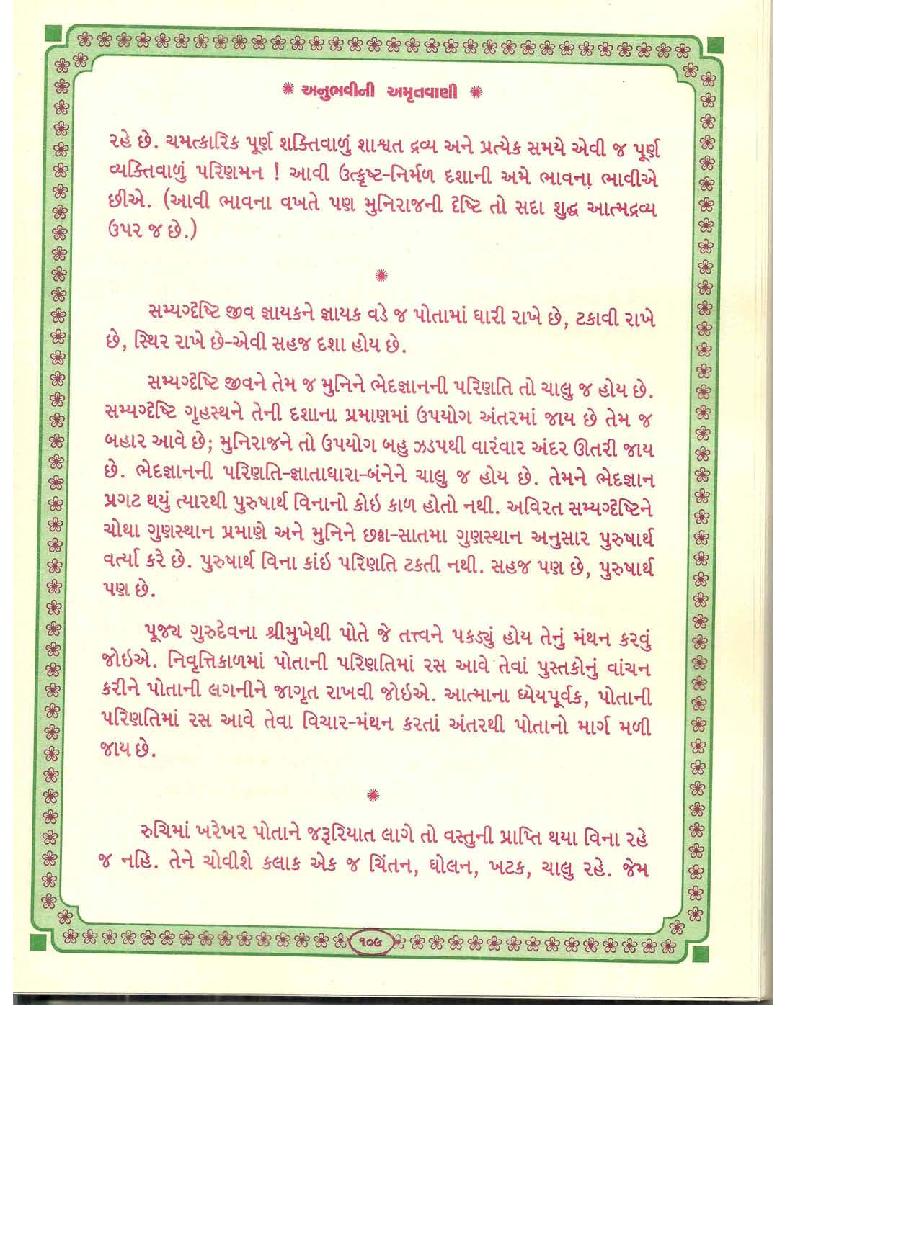 ✺ અનુભવીની અમૃતવાણી ✺
રહે છે. ચમત્કારિક પૂર્ણ શક્તિવાળું શાશ્વત દ્રવ્ય અને પ્રત્યેક સમયે એવી જ પૂર્ણ
વ્યક્તિવાળું પરિણમન ! આવી ઉત્કૃષ્ટ-નિર્મળ દશાની અમે ભાવના ભાવીએ
છીએ. (આવી ભાવના વખતે પણ મુનિરાજની દૃષ્ટિ તો સદા શુદ્ધ આત્મદ્રવ્ય
ઉપર જ છે.)
✺
સમ્યગ્દૃષ્ટિ જીવ જ્ઞાયકને જ્ઞાયક વડે જ પોતામાં ધારી રાખે છે, ટકાવી રાખે
છે, સ્થિર રાખે છે-એવી સહજ દશા હોય છે.
સમ્યગ્દૃષ્ટિ જીવને તેમ જ મુનિને ભેદજ્ઞાનની પરિણતિ તો ચાલુ જ હોય છે.
સમ્યગ્દૃષ્ટિ ગૃહસ્થને તેની દશાના પ્રમાણમાં ઉપયોગ અંતરમાં જાય છે તેમ જ
બહાર આવે છે; મુનિરાજને તો ઉપયોગ બહુ ઝડપથી વારંવાર અંદર ઊતરી જાય
છે. ભેદજ્ઞાનની પરિણતિ-જ્ઞાતાધારા-બંનેને ચાલુ જ હોય છે. તેમને ભેદજ્ઞાન
પ્રગટ થયું ત્યારથી પુરુષાર્થ વિનાનો કોઇ કાળ હોતો નથી. અવિરત સમ્યગ્દૃષ્ટિને
ચોથા ગુણસ્થાન પ્રમાણે અને મુનિને છઠ્ઠા-સાતમા ગુણસ્થાન અનુસાર પુરુષાર્થ
વર્ત્યા કરે છે. પુરુષાર્થ વિના કાંઇ પરિણતિ ટકતી નથી. સહજ પણ છે, પુરુષાર્થ
પણ છે.
પૂજ્ય ગુરુદેવના શ્રીમુખેથી પોતે જે તત્ત્વને પકડ્યું હોય તેનું મંથન કરવું
જોઇએ. નિવૃત્તિકાળમાં પોતાની પરિણતિમાં રસ આવે તેવાં પુસ્તકોનું વાંચન
કરીને પોતાની લગનીને જાગૃત રાખવી જોઇએ. આત્માના ધ્યેયપૂર્વક, પોતાની
પરિણતિમાં રસ આવે તેવા વિચાર-મંથન કરતાં અંતરથી પોતાનો માર્ગ મળી
જાય છે.
✺
રુચિમાં ખરેખર પોતાને જરૂરિયાત લાગે તો વસ્તુની પ્રાપ્તિ થયા વિના રહે
જ નહિ. તેને ચોવીશે કલાક એક જ ચિંતન, ઘોલન, ખટક, ચાલુ રહે. જેમ
૧૦૯